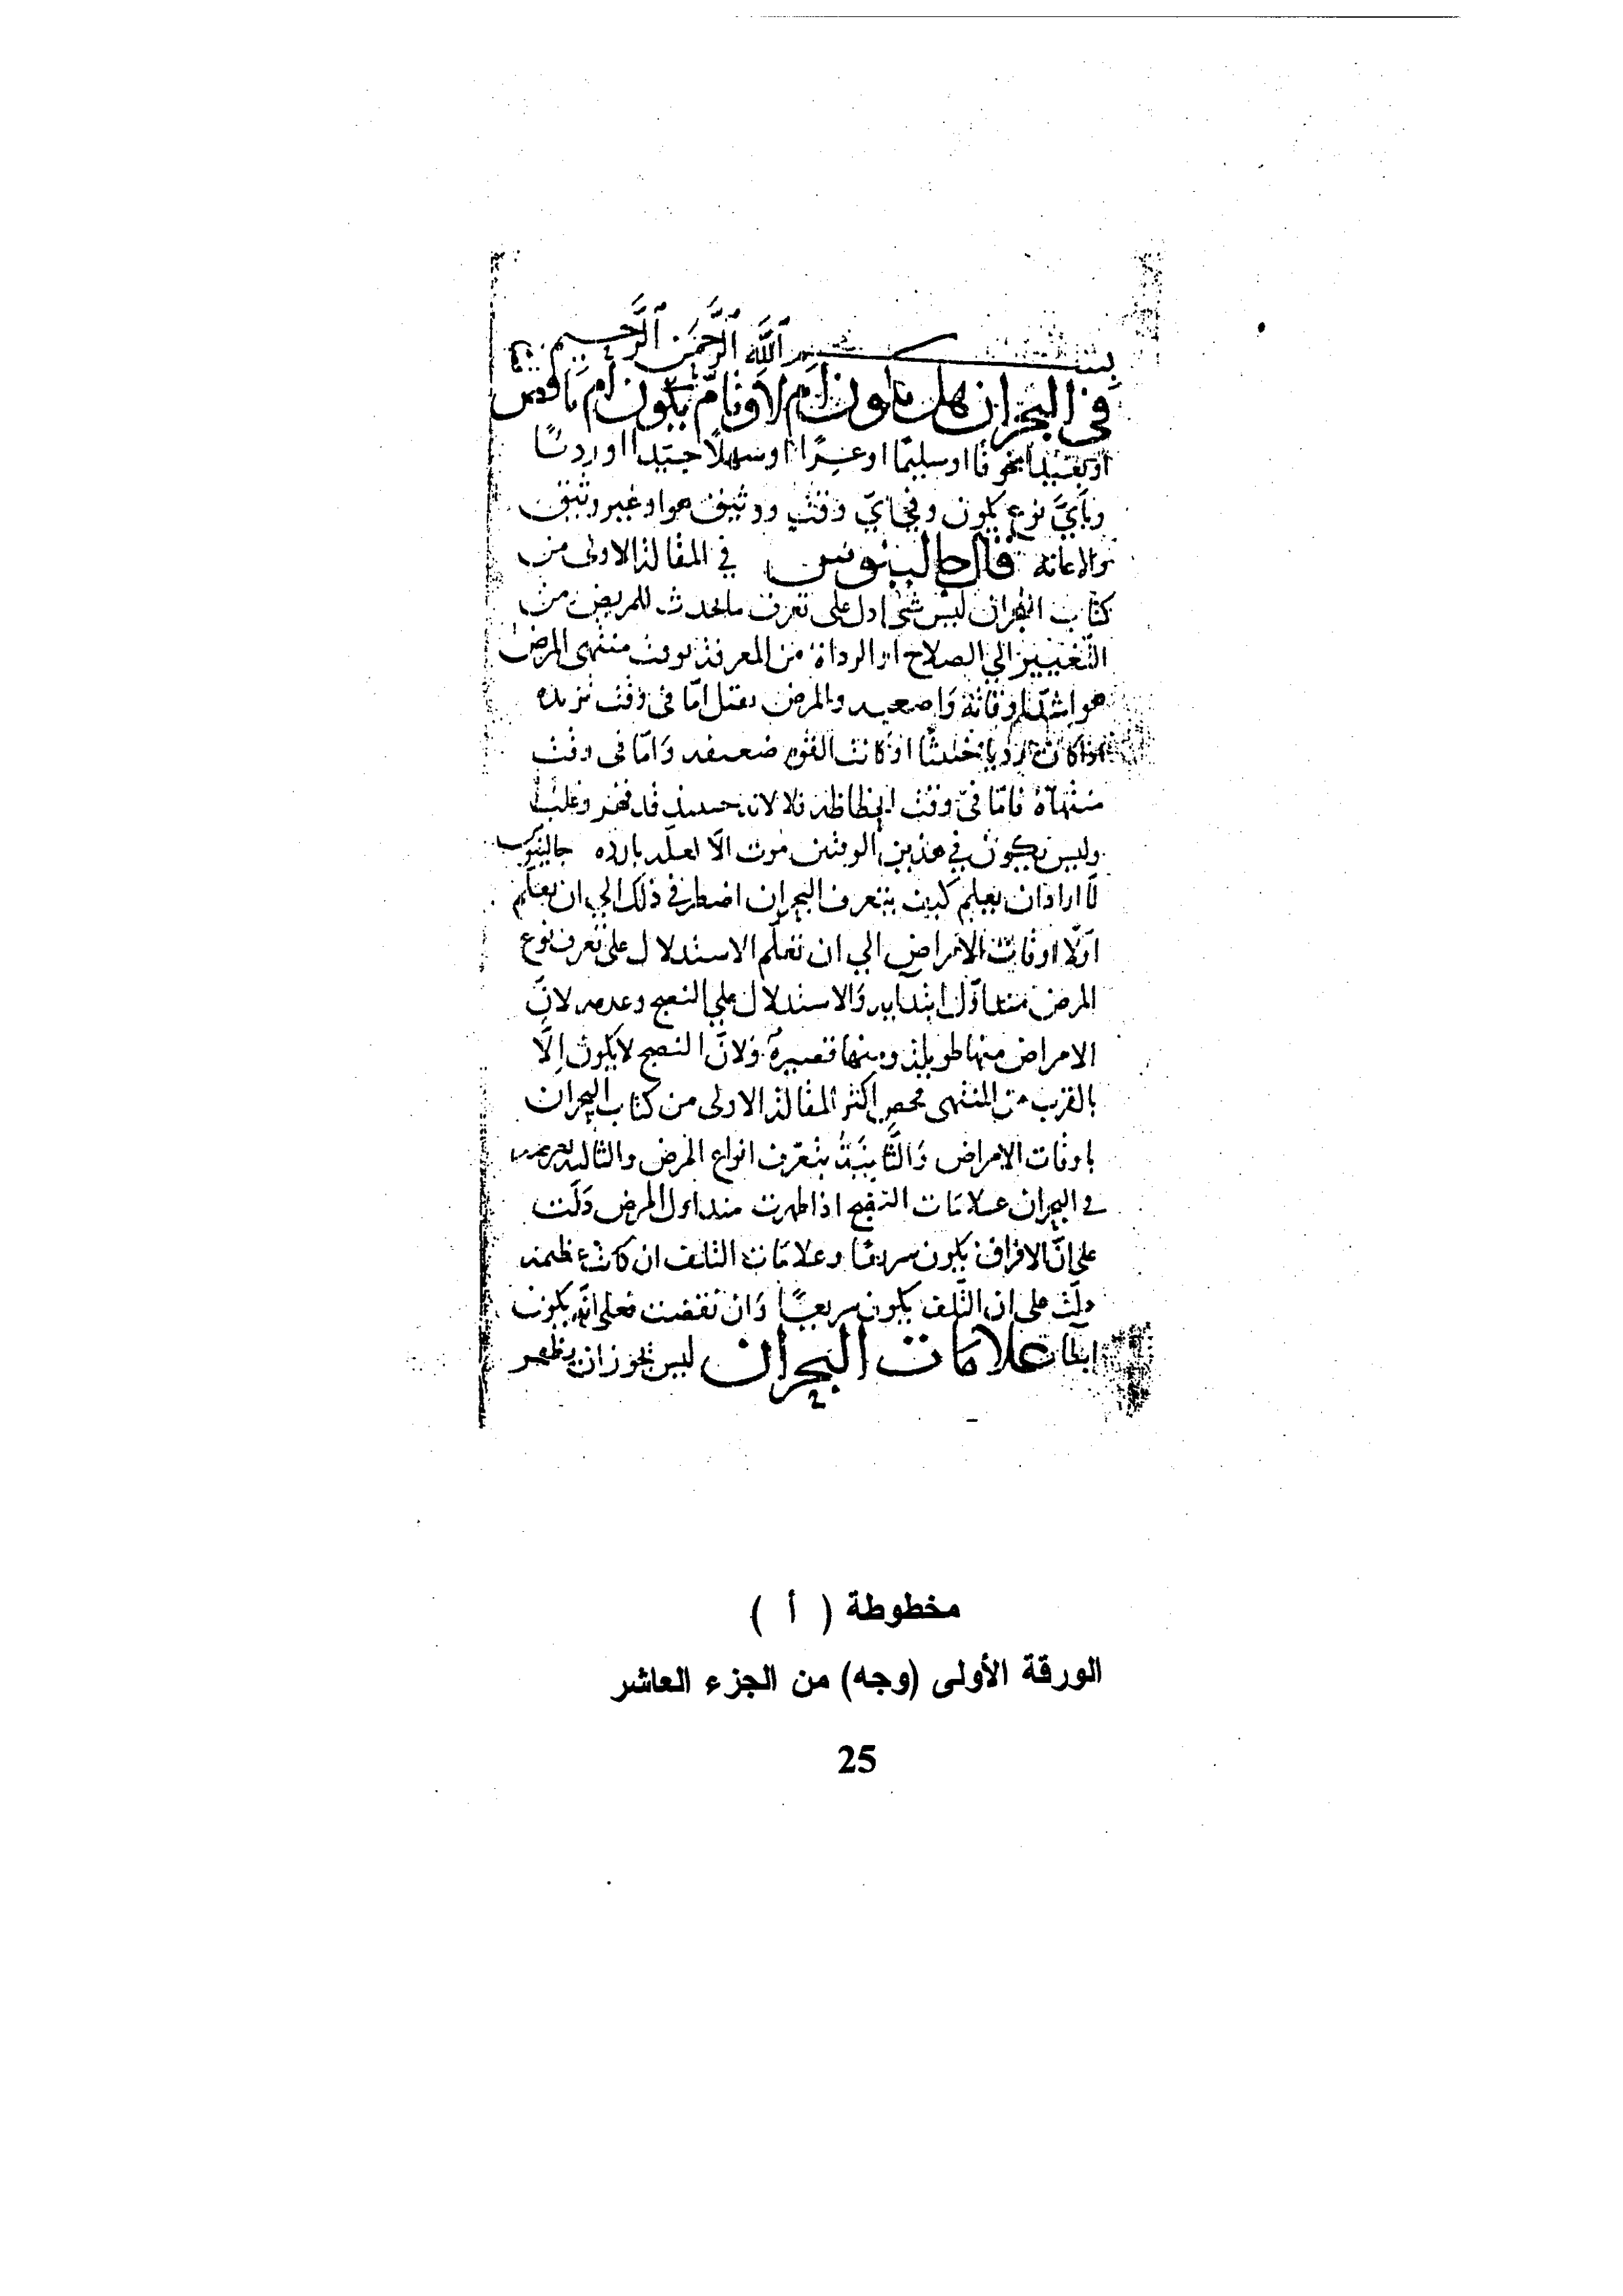 بسم الله الرحمن الرحيم
في البحران هل يكون أم لا وتام يكون أم ناقص
أو بعيدا مخوفا او سليما او عسرا او سهلا جيدا او رديا
وبأي نوع يكون وفي اي وقت ووثيق هو او غير وثيق
والاعانة قال جالينوس في المقالة الاولى من
كتاب البحران ليس شى ادل على تعرف ما يحدث للمريض من
التغيير الي الصلاح او الرداة من المعرفة بوقت منتهى المرض
هو اشد اوقاته واصعبه والمرض يقتل امّا في وقت تزيده
اذا كان رديا خبيثا او كانت القوة ضعيفه وامّا في وقت
منتهاه فامّا في وقت انحطاطه فلا لانه حينيذ قد قهر وغلب
وليس يكون في هذين الوقتين موت الّا لعلة بارده جالينوس
لما اراد ان يعلم كيف يتعرف البحران اضطر في ذلك الي ان يعلّم
اوّلا اوقات الامراض الي ان تعلّم الاستدلال على تعرف نوع
المرض منذ اوّل ابتدايه والاستدلال علي النضج وعدمه لانّ
الامراض منها طويلة ومنها قصيرة ولانّ النضج لا يكون إلّا
بالقرب من المنتهى فحص اكثر المقالة الاولى من كتاب البحران
باوقات الامراض والثّانية بتعرّف انواع المرض والثالثة
في البحران علامات النضج اذا ظهرت منذ اول المرض دلّت
على انّ الافراق يكون سريعا وعلامات التلف ان كانت عظيمة
دلّت على ان التّلف يكون سريعًا وان نقصت فعلى انّه يكون
ابطأ علامات البحران ليس يجوز ان يظهر
مخطوطة ( أ )
الورقة الأولى (وجه) من الجزء العاشر
25